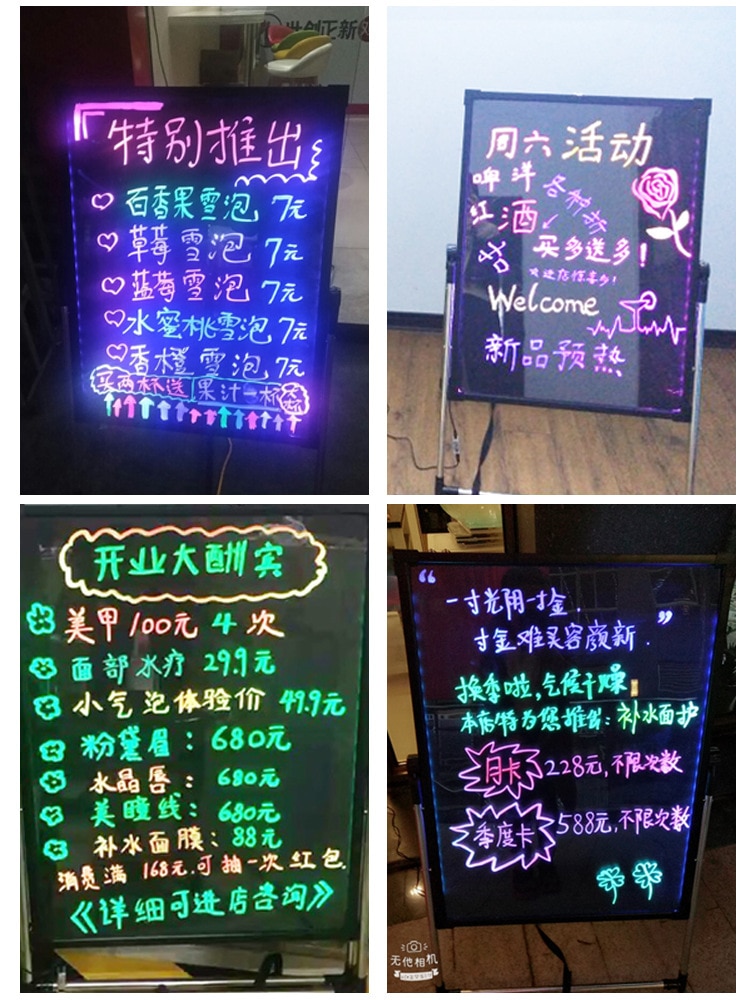 世创正新
特别推出
百香果雪泡 7元
草莓雪泡 7元
蓝莓雪泡 7元
水蜜桃雪泡 7元
香橙雪泡 7元
买两杯送果汁一杯
周六活动
啤洋
红酒
各种
买多送多!
Welcome
新品预热
开业大酬宾
美甲100元4次
面部水疗 29.9元
小气泡体验价 49.9元
粉黛眉: 680元
水晶唇: 680元
美瞳线: 680元
补水面膜: 88元
消费满168元.可抽一次红包.
《详细可进店咨询》
“一寸光阴一寸金.
寸金难买容颜新.”
换季啦,气候干燥
本店特为您推出:补水面护
月卡 228元,不限次数
季度卡 588元,不限次数
无他相机